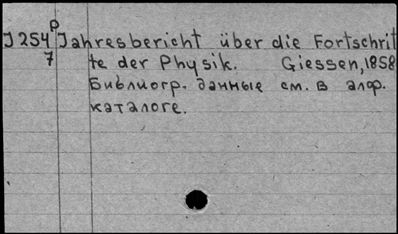 р
J 254 Jahresbericht über die Fortschrit
7 te der Physik. Giessen, 1858
Библиогр. данные см. в алф.
каталоге.